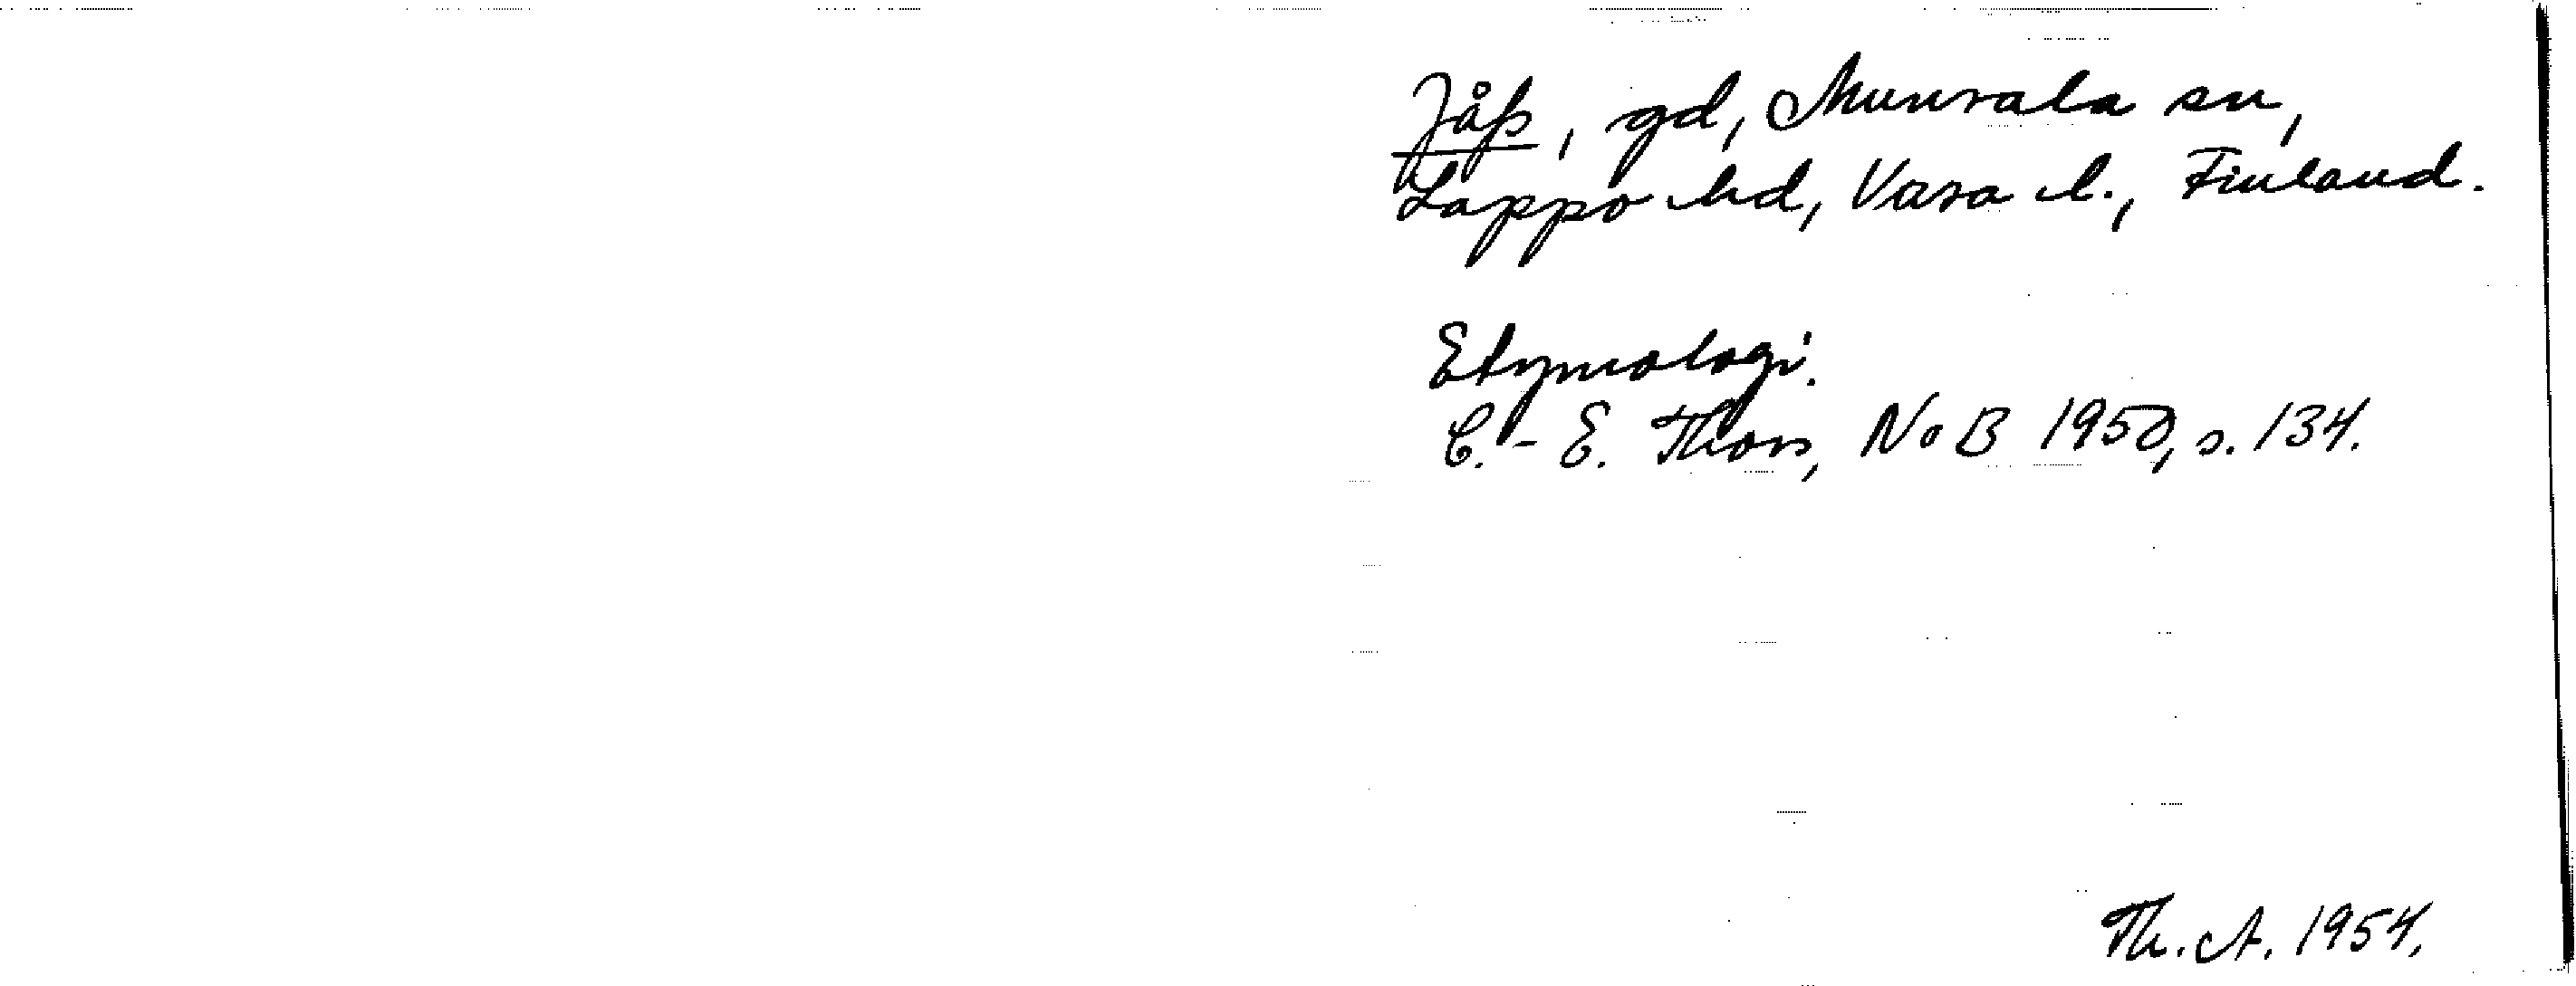 Jåfs, gd, Munsala sn,
Lappo hd, Vasa l., Finland.
Etymologi.
C.-E. Thors, NoB 1950, s. 134.
Th. A. 1954.